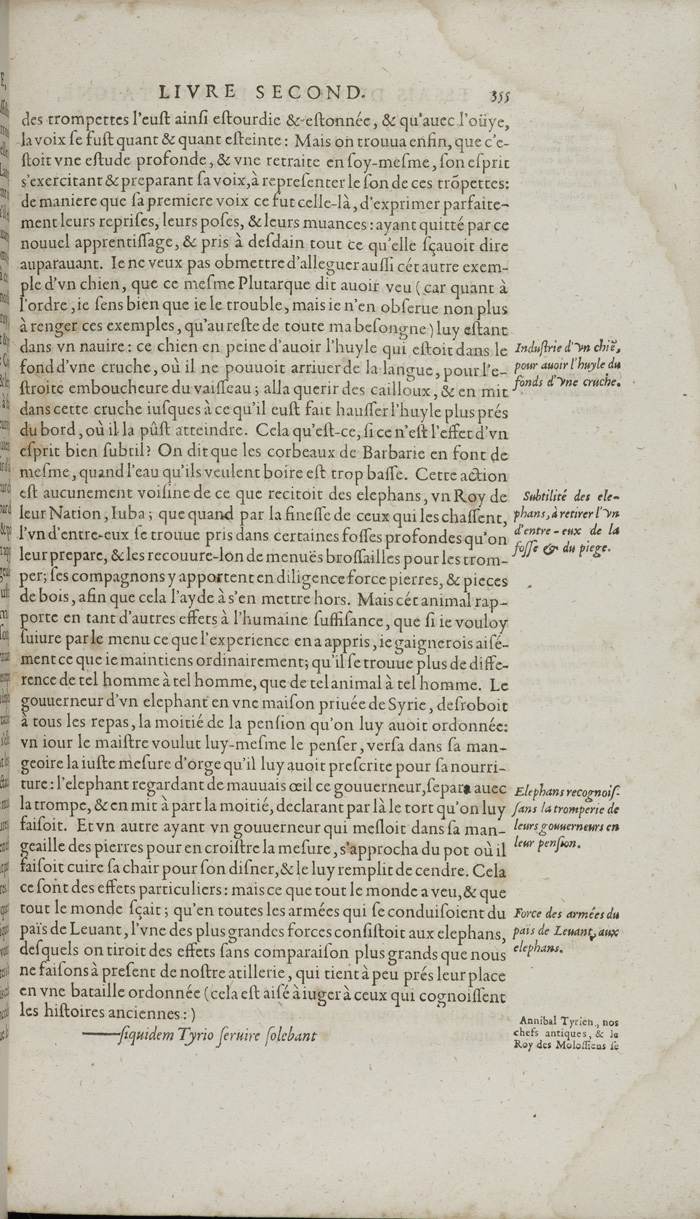 LIVRE SECOND. 355
des trompettes l'eust ainsi estourdie & estonnée, & qu'auec l'oüye,
la voix se fust quant & quant esteinte: Mais on trouua enfin, que c'e-
stoit vne estude profonde, & vne retraite en soy-mesme, son esprit
s'exercitant & preparant sa voix, à representer le son de ces trõpettes:
de maniere que sa premiere voix ce fut celle-là, d'exprimer parfaite-
ment leurs reprises, leurs poses, & leurs muances: ayant quitté par ce
nouuel apprentissage, & pris à desdain tout ce qu'elle sçauoit dire
auparauant. Ie ne veux pas obmettre d'alleguer aussi cét autre exem-
ple d'vn chien, que ce mesme Plutarque dit auoir veu (car quant à
l'ordre, ie sens bien que ie le trouble, mais ie n'en obserue non plus
à renger ces exemples, qu'au reste de toute ma besongne) luy estant
dans vn nauire: ce chien en peine d'auoir l'huyle qui estoit dans le
fond d'vne cruche, où il ne pouuoit arriuer de la langue, pour l'e-
stroite emboucheure du vaisseau; alla querir des cailloux, & en mit
dans cette cruche iusques à ce qu'il eust fait hausser l'huyle plus prés
du bord, où il la pûst atteindre. Cela qu'est-ce, si ce n'est l'effet d'vn
esprit bien subtil? On dit que les corbeaux de Barbarie en font de
mesme, quand l'eau qu'ils veulent boire est trop basse. Cette action
est aucunement voisine de ce que recitoit des elephans, vn Roy de
leur Nation, Iuba; que quand par la finesse de ceux qui les chassent,
l'vn d'entre-eux se trouue pris dans certaines fosses profondes qu'on
leur prepare, & les recouure-lon de menuës brossailles pour les trom-
per; ses compagnons y apportent en diligence force pierres, & pieces
de bois, afin que cela l'ayde à s'en mettre hors. Mais cét animal rap-
porte en tant d'autres effets à l'humaine suffisance, que si ie vouloy
suiure par le menu ce que l'experience en a appris, ie gaignerois aisé-
ment ce que ie maintiens ordinairement; qu'il se trouue plus de diffe-
rence de tel homme à tel homme, que de tel animal à tel homme. Le
gouuerneur d'vn elephant en vne maison priuée de Syrie, desroboit
à tous les repas, la moitié de la pension qu'on luy auoit ordonnée:
vn iour le maistre voulut luy-mesme le penser, versa dans sa man-
geoire la iuste mesure d'orge qu'il luy auoit prescrite pour sa nourri-
ture: l'elephant regardant de mauuais œil ce gouuerneur, separa auec
la trompe, & en mit à part la moitié, declarant par là le tort qu'on luy
faisoit. Et vn autre ayant vn gouuerneur qui mesloit dans sa man-
geaille des pierres pour en croistre la mesure, s'approcha du pot où il
faisoit cuire sa chair pour son disner, & le luy remplit de cendre. Cela
ce sont des effets particuliers: mais ce que tout le monde a veu, & que
tout le monde sçait; qu'en toutes les armées qui se conduisoient du
païs de Leuant, l'vne des plus grandes forces consistoit aux elephans,
desquels on tiroit des effets sans comparaison plus grands que nous
ne faisons à present de nostre atillerie, qui tient à peu prés leur place
en vne bataille ordonnée (cela est aisé à iuger à ceux qui cognoissent
les histoires anciennes:)
——siquidem Tyrio seruire solebant
Industrie d'vn chiẽ,
pour auoir l'huyle du
fonds d'vne cruche.
Subtilité des ele-
phans, à retirer l'vn
d'entre-eux de la
fosse & du piege.
Elephans recognois-
sans la tromperie de
leurs gouuerneurs en
leur pension.
Force des armées du
païs de Leuant, aux
elephans.
Annibal Tyrien, nos
chefs antiques, & le
Roy des Molossiens se